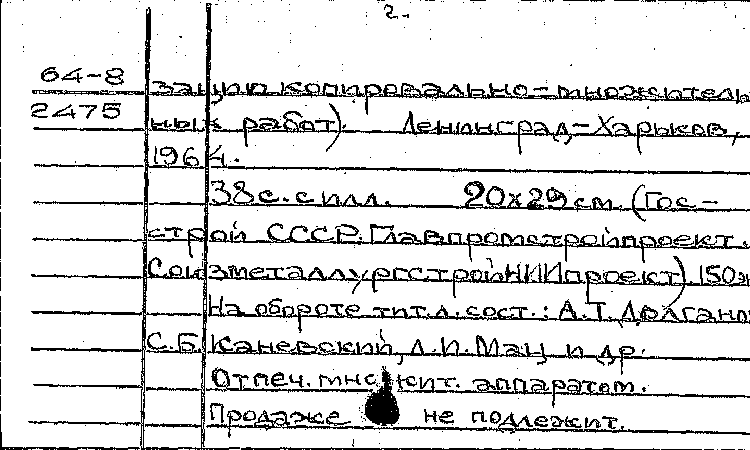 2.
64-8 зацию копировально-множитель
2475 ных работ). Ленинград-Харьков,
1964.
38 с. с илл. 20х29 см. (Гос-
строй СССР. Главпромстройпроект.
СоюзметаллургстройНИИпроект) 150э
На обороте тит. л. сост.: А.Т. Долган
С.Б. Каневский, Л.И. Мац и др.
Отпеч. множит. аппаратом.
Продаже не подлежит.